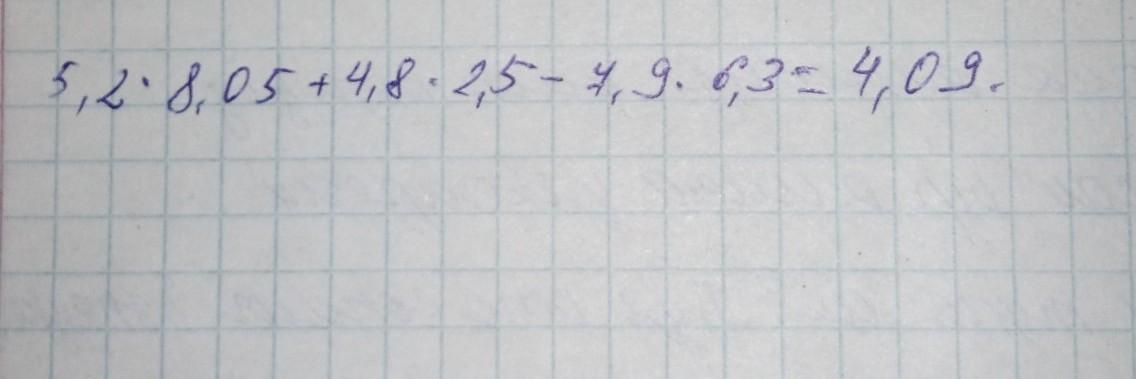 5,2·8,05+4,8·2,5-7,9·6,3=4,09.